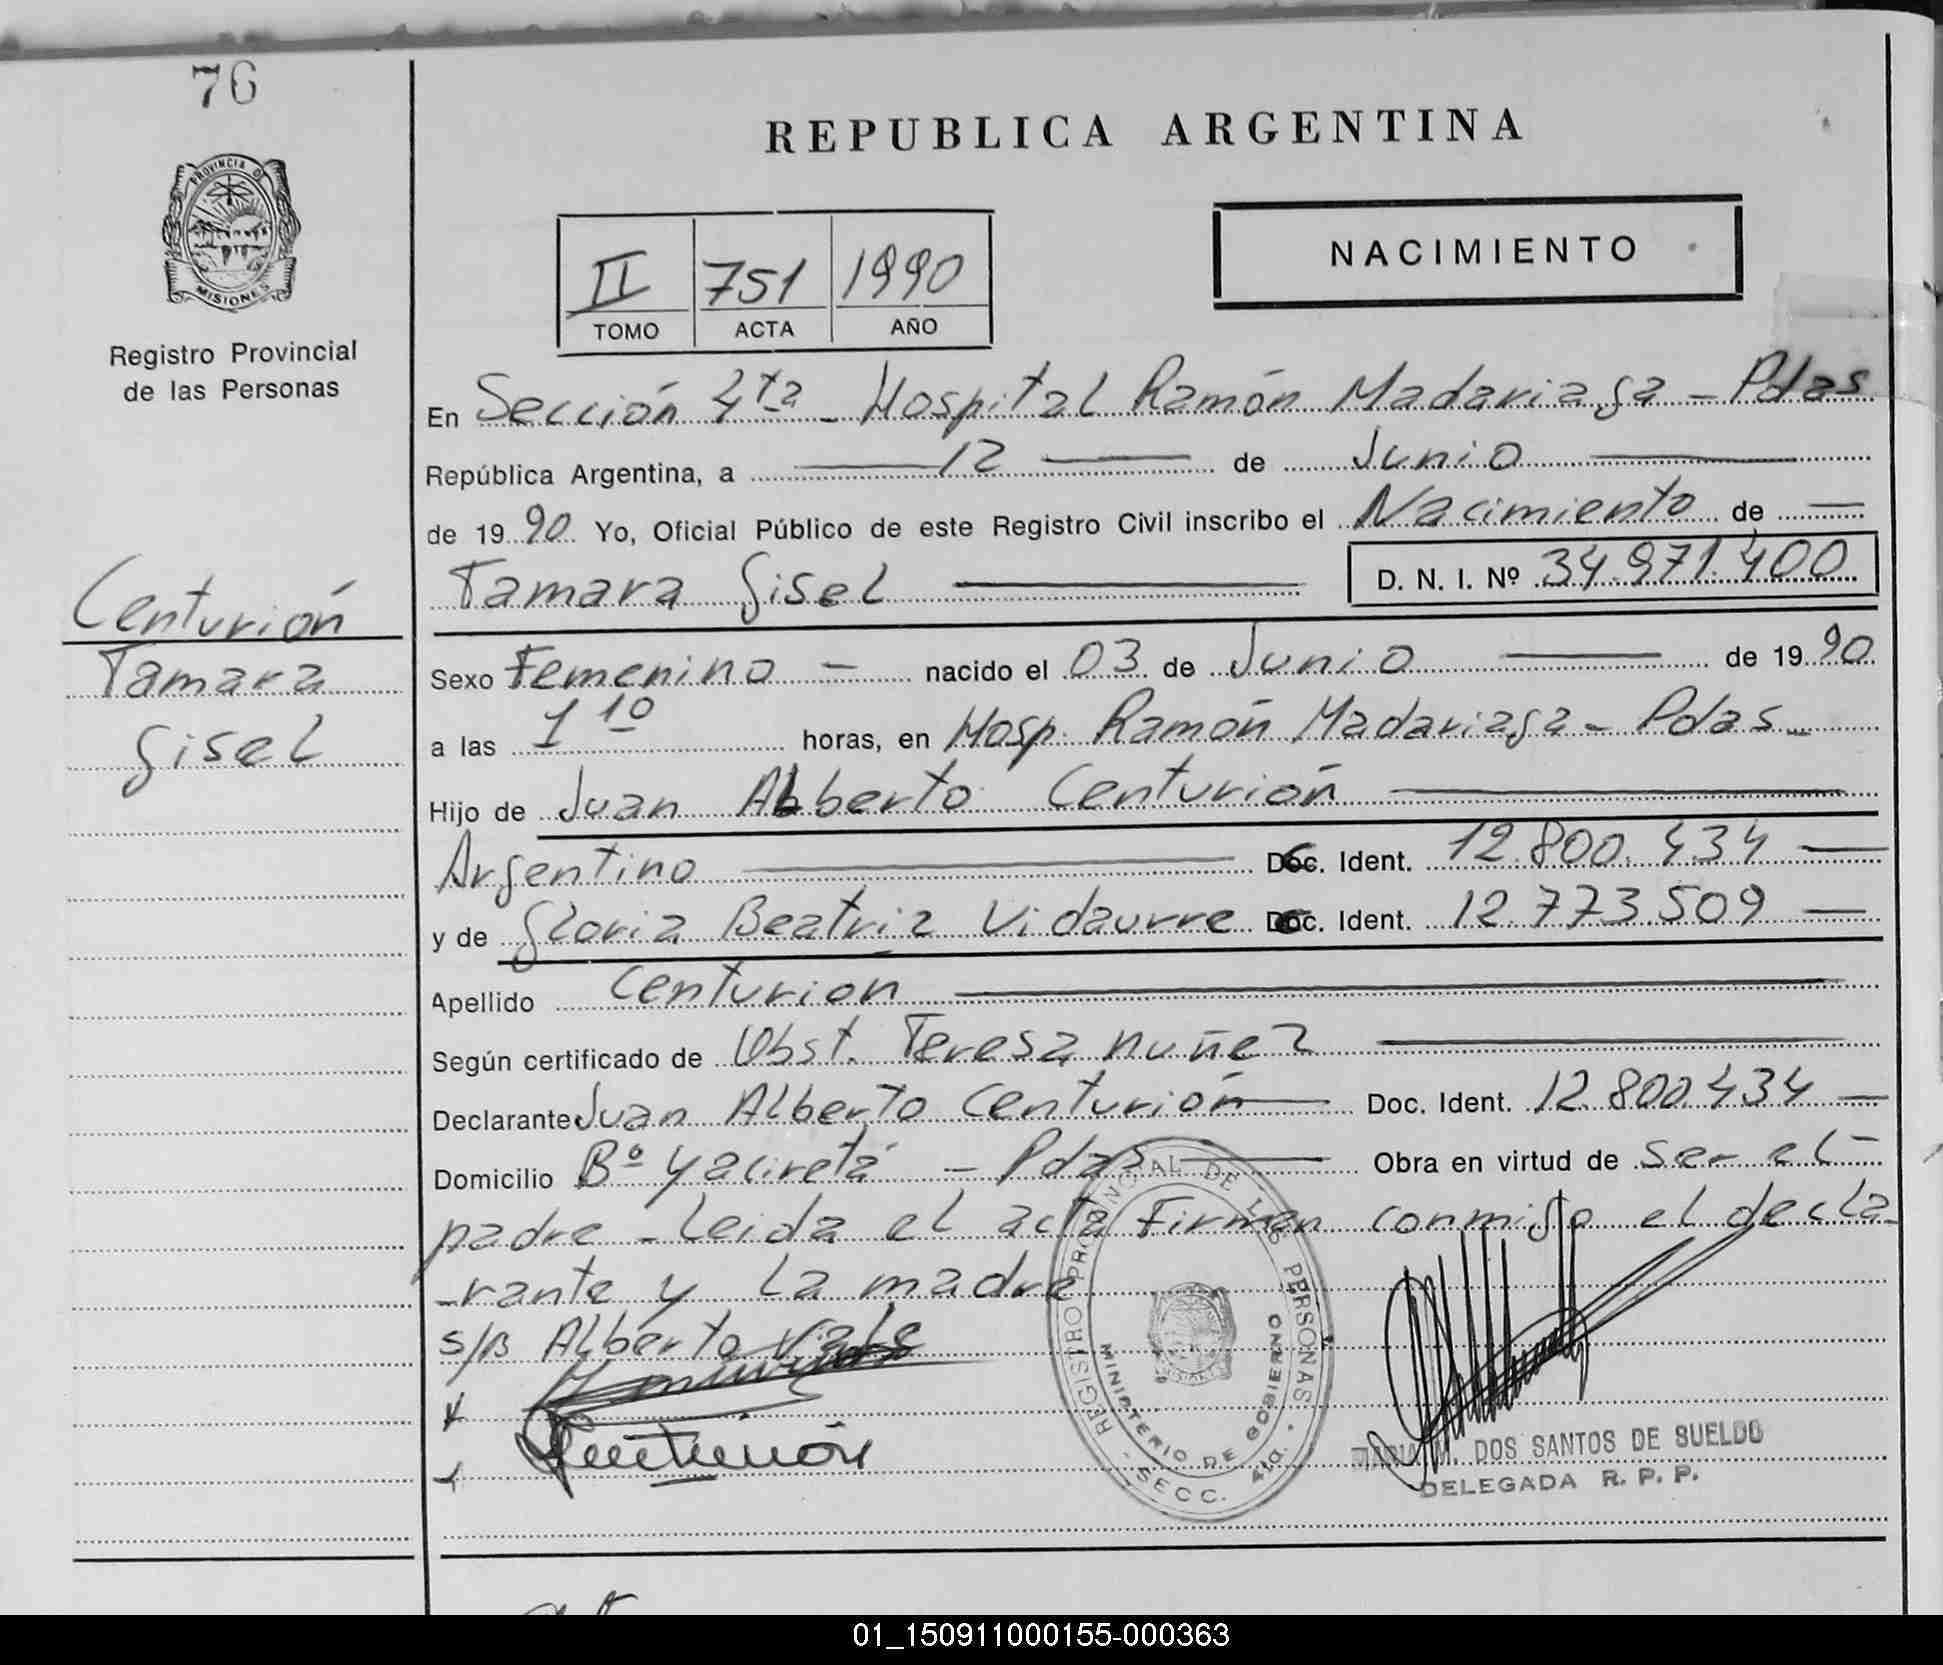 76
REPUBLICA ARGENTINA
PROVINCIA D
MISIONES
Registro Provincial
de las Personas
NACIMIENTO
II 751 1990
TOMO ACTA AÑO
En Sección 4ta - Hospital Ramón Madariaga - Pdas
República Argentina, a 12 de Junio
de 1990 Yo, Oficial Público de este Registro Civil inscribo el Nacimiento de
Tamara Gisel D. N. I. Nº 34.971.400
Centurión
Tamara
Gisel
Sexo Femenino - nacido el 03 de Junio de 1990
a las 1 10 horas, en Hosp. Ramón Madariaga - Pdas -
Hijo de Juan Alberto Centurión
Argentino Doc. Ident. 12.800.434
y de Gloria Beatriz Vidaurre Doc. Ident. 12.773.509
Apellido Centurion
Según certificado de Obst. Teresa nuñez
Declarante Juan Alberto Centurión Doc. Ident. 12.800.434
Domicilio Bº Yaciretá - Pdas Obra en virtud de ser el
padre - Leida el acta Firman conmigo el decla-
-rante y La madre
s/B Alberto Vale
Centurión
REGISTRO PROVINCIAL DE LAS PERSONAS
MINISTERIO DE GOBIERNO
SECC. 4ta.
MARIA M. DOS SANTOS DE SUELDO
DELEGADA R. P. P.
01_150911000155-000363